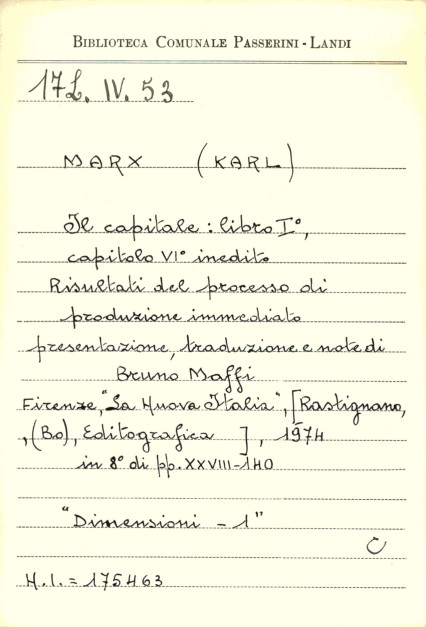 BIBLIOTECA COMUNALE PASSERINI - LANDI
17L. IV. 53
MARX (KARL)
Il capitale : libro I°,
capitolo VI° inedito
Risultati del processo di
produzione immediato
presentazione, traduzione e note di
Bruno Maffi
Firenze, "La Nuova Italia", [Rastignano,
,(Bo), Editografica ], 1974
in 8° di pp. XXVIII-140
"Dimensioni - 1"
C
N.I. = 175463